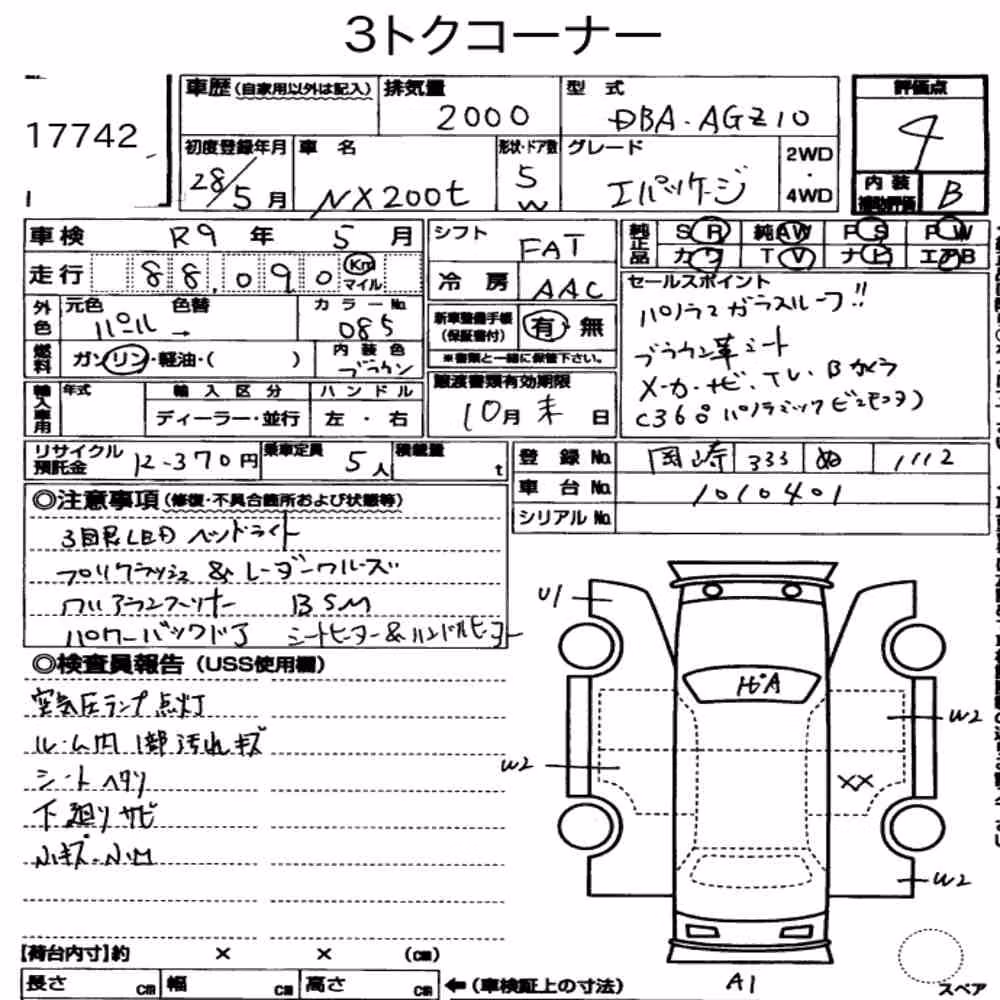 3トクコーナー
17742
車歴 (自家用以外は記入) 排気量 2000 型式 DBA-AGZ10 評価点 4
初度登録年月 28/5月 車名 NX200t 形状・ドア数 5 W グレード Iパッケージ 2WD・4WD 内装補助評価 B
車検 R9年 5月 シフト FAT 純正品 SR 純AW PS PW
走行 88,090 Km マイル 冷房 AAC カワ TV ナビ エアB
外色 元色 パール → 色替 カラーNo. 085 新車整備手帳(保証書付) 有・無 セールスポイント
※書類と一緒に保管下さい。
パノラマガラスルーフ!!
燃料 ガソリン・軽油・( ) 内装色 ブラウン ブラウン革シート
輸入車用 年式 輸入区分 ハンドル 譲渡書類有効期限 メーカーナビ、TV、Bカメラ
ディーラー・並行 左・右 10月末日 (360°パノラミックビューモニタ)
リサイクル預託金 12,370円 乗車定員 5人 積載量 t 登録No. 岡崎 333 ぬ 1112
車台No. 1010401
シリアルNo.
◎注意事項 (修復・不具合箇所および状態等)
3眼LEDヘッドライト
プリクラッシュ&レーダークルーズ
クリアランスソナー BSM
パワーバックドア シートヒーター&ハンドルヒーター
◎検査員報告 (USS使用欄)
空気圧ランプ点灯
ルーム内1部汚れキズ
シートヘタリ
下廻りサビ
小キズ・小凹
U1
W2
W2
XX
W2
A1
スペア
【荷台内寸】約 × × (cm)
長さ cm 幅 cm 高さ cm ←(車検証上の寸法)